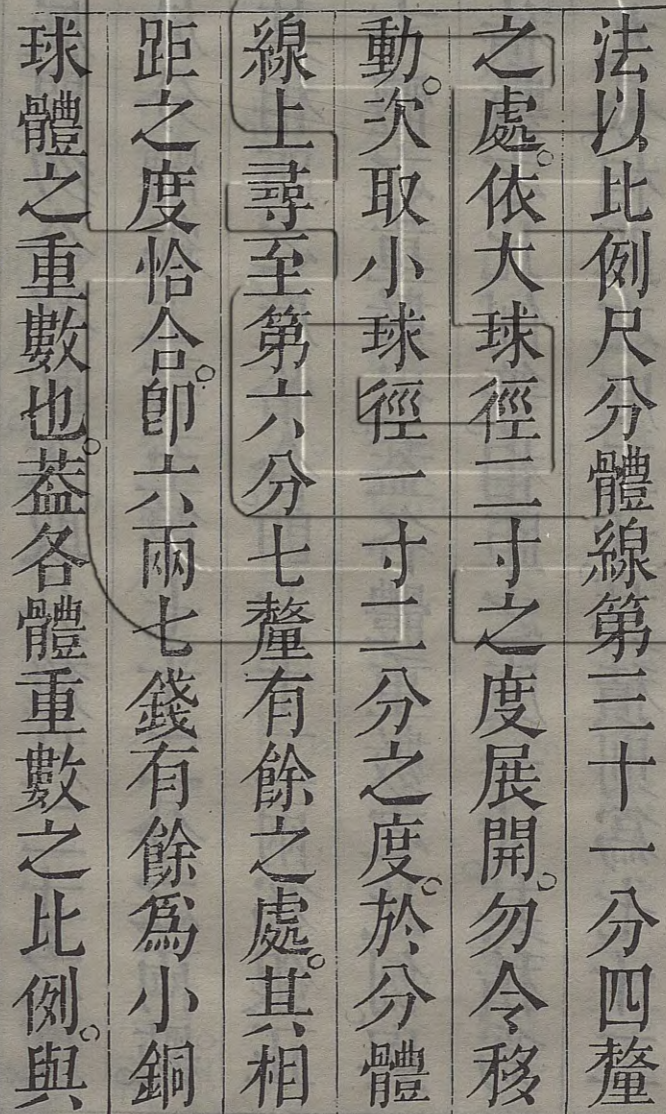 法以比例尺分體線第三十一分四釐
之處。依大球徑二寸之度展開。勿令移
動。次取小球徑一寸二分之度。於分體
線上尋至第六分七釐有餘之處。其相
距之度恰合。卽六兩七錢有餘爲小銅
球體之重數也。葢各體重數之比例。與